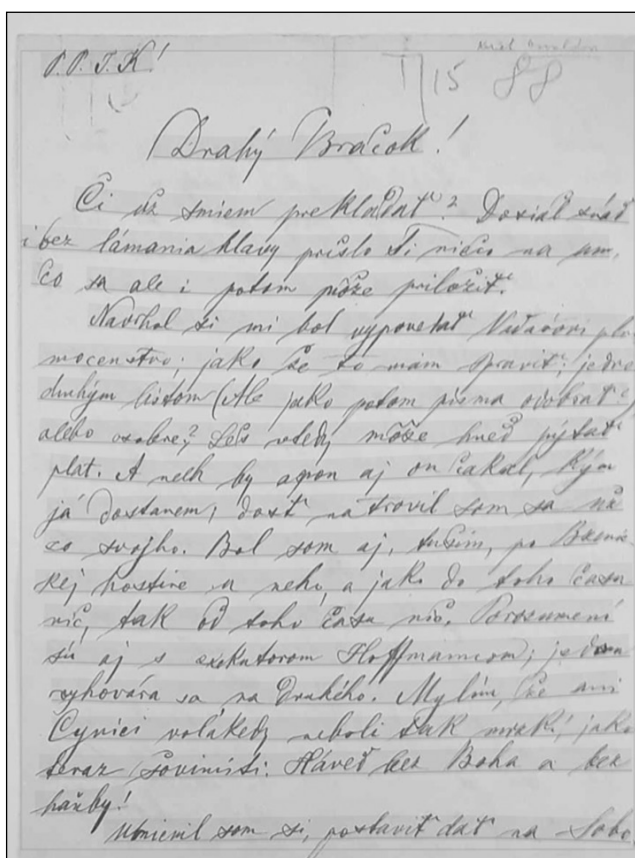 P. P. T. K!
15 88
Drahý Bračok!
Či už smiem prekladať? Dosiaľ snáď
i bez lámania hlavy prišlo Ti niečo na um,
čo sa ale i potom môže priložiť.
Navrhol si mi bol vypovedať
mocenstvo; jako že to mám spraviť: jedno
druhým listom (Ale jako potom písma odobrať?)
alebo osobne? Lež vtedy môže hneď pýtať
plat. A nech by aspon aj on čakal, kým
já dostanem; dosť natrovil som sa na
svojho. Bol som aj, tuším, po
kej hostine u neho, a jako do toho času
nič, tak od toho času nič. Porozumení
sú aj s exekutorom Hoffmannom; jeden
vyhovára sa na druhého. Myslím, že ani
Cynici volákedy neboli tak mrzkí, jako
teraz šovinisti. Háveď bez Boha a bez
hanby!
Umienil som si, postaviť dať na